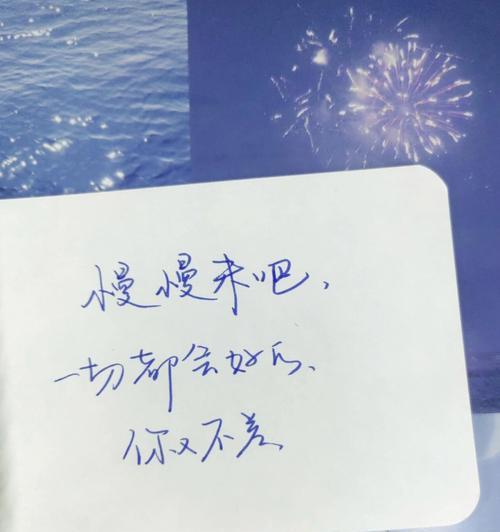 慢慢来吧,
一切都会好的、
你又不差